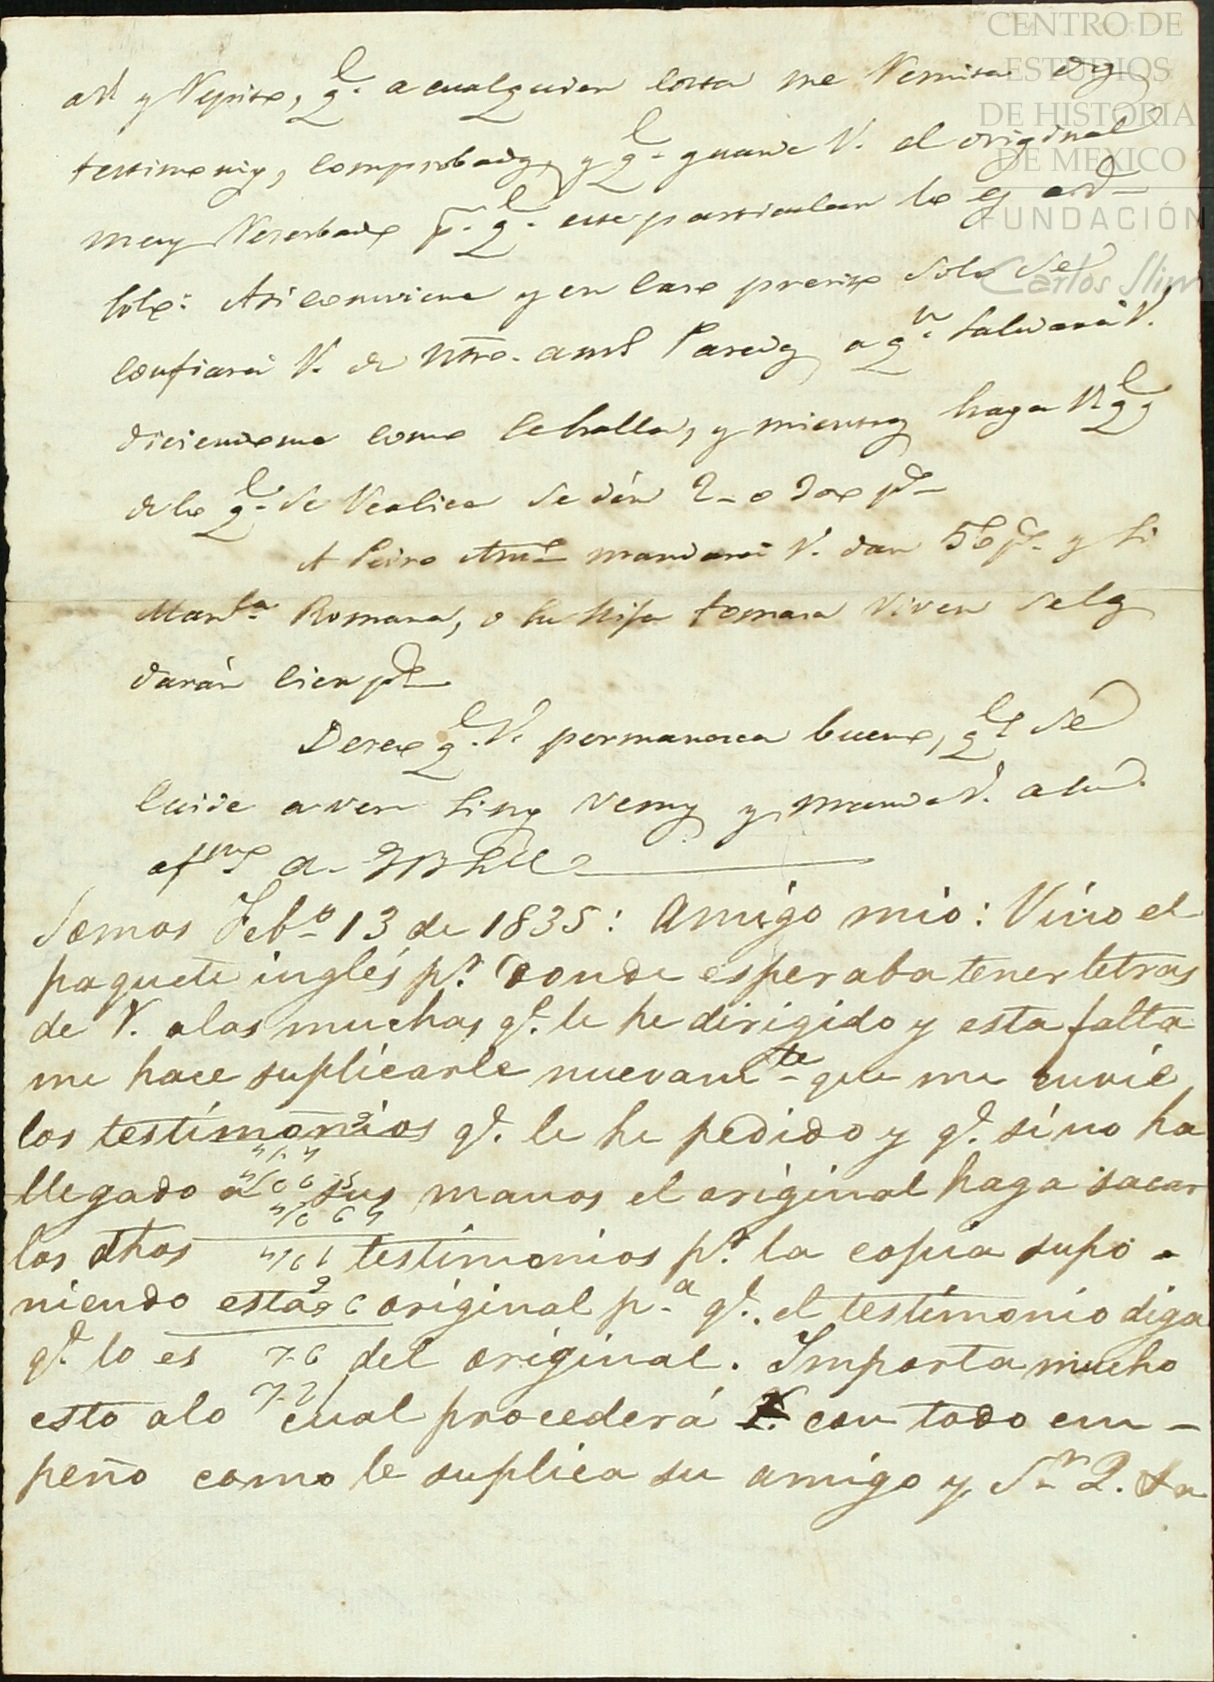 CENTRO DE
ESTUDIOS
DE HISTORIA
DE MEXICO
FUNDACIÓN
Carlos Slim
y Repito, q.e a cualquier costa me Remita dos
testimonios, comprobados, y q.e guarde V. el original
muy Reserbado p.r q.e este particular lo es
Asi conviene y en caso preciso solo se
confiará V. de Ntro. amo Paredes a q.n saludará V.
diciendome como se halla, y mientras haga
de lo q.e se Realice se dén
A Pedro mandará V. dar 50 p.s y si
Romana, o su hija tomasa viven selas
darán cien p.s
Deseo q.e V. permanesca bueno, q.e se
cuide a ver si nos vemos y mande V. a su
af.mo
Somos Feb.o 13 de 1835: Amigo mio: Vino el
paquete inglés p.r donde esperaba tener letras
de V. a las muchas q.e le he dirigido y esta falta
me hace suplicarle nuevam.te que me envíe
los testimonios q.e le he pedido y q.e sino ha
llegado a sus manos el original haga sacar
los dhos testimonios p.r la copia supo-
niendo esta original p.a q.e el testimonio diga
q.e lo es del original. Importa mucho
esto a lo cual procederá V. con todo em-
peño como le suplica su amigo y S.r Q.